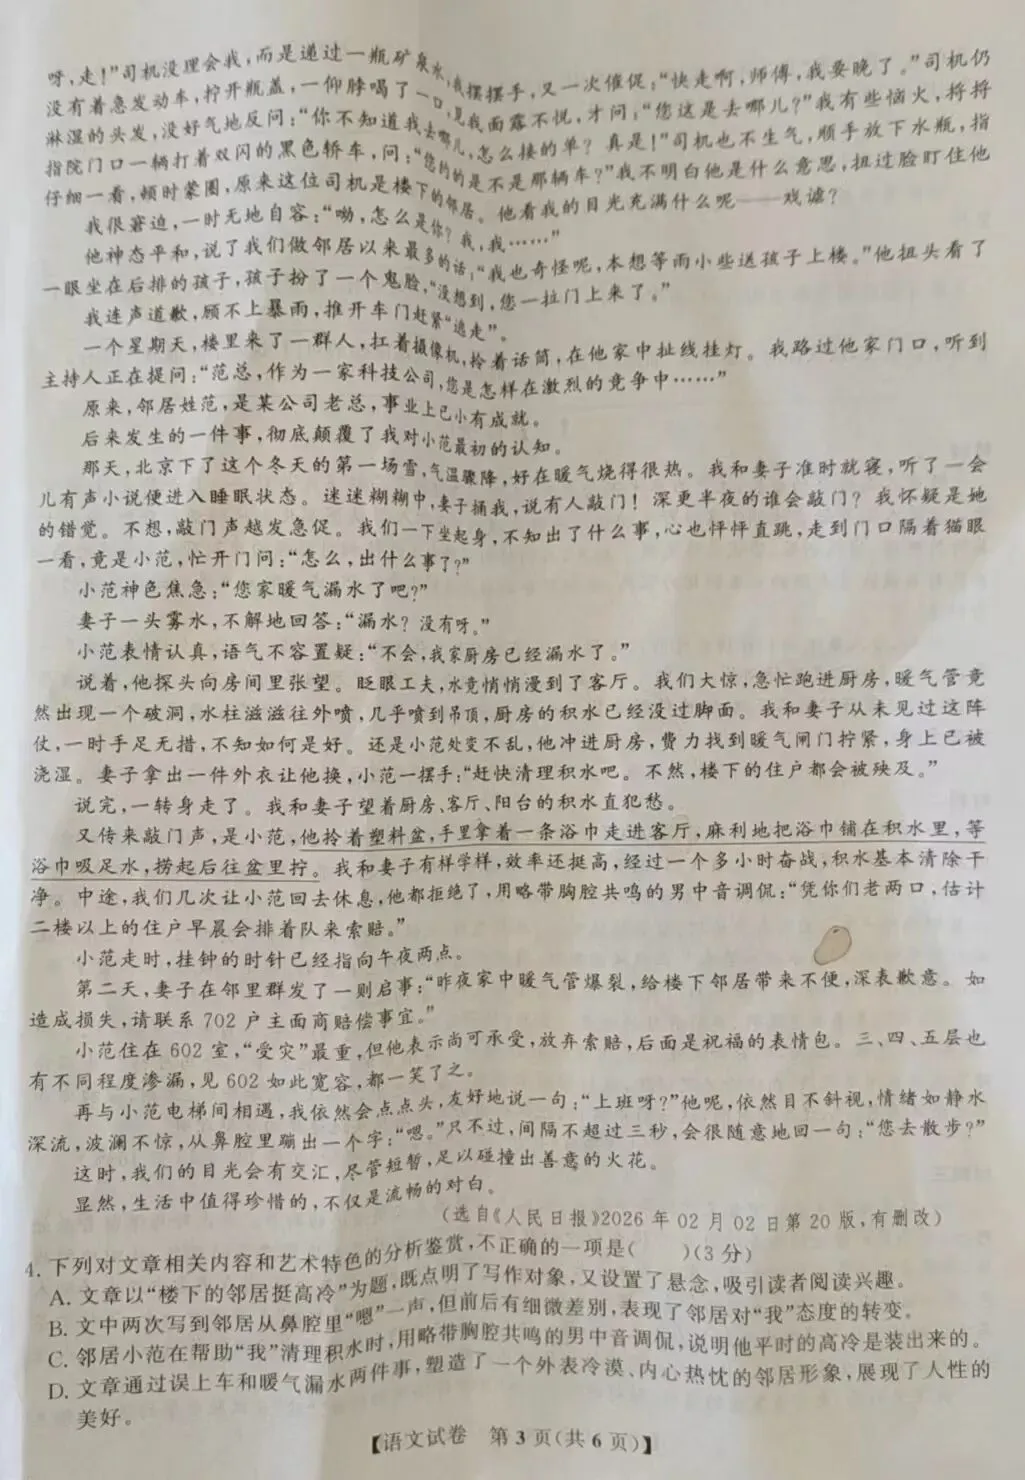 呀,走!”司机没理会我,而是递过一瓶矿泉水,我摆摆手,又一次催促:“快走啊,师傅,我要晚了。”司机仍
没有着急发动车,拧开瓶盖,一仰脖喝了一口,见我面露不悦,才问:“您这是去哪儿?”我有些恼火,捋捋
淋湿的头发,没好气地反问:“你不知道我去哪儿,怎么接的单?真是!”司机也不生气,顺手放下水瓶,指
指院门口一辆打着双闪的黑色轿车,问:“您约的是不是那辆车?”我不明白他是什么意思,扭过脸盯住他
仔细一看,顿时蒙圈,原来这位司机是楼下的邻居。他看我的目光充满什么呢——戏谑?
我很窘迫,一时无地自容:“呦,怎么是你?我,我……”
他神态平和,说了我们做邻居以来最多的话:“我也奇怪呢,本想等雨小些送孩子上楼。”他扭头看了
一眼坐在后排的孩子,孩子扮了一个鬼脸,“没想到,您一拉门上来了。”
我连声道歉,顾不上暴雨,推开车门赶紧“逃走”。
一个星期天,楼里来了一群人,扛着摄像机,拎着话筒,在他家中扯线挂灯。我路过他家门口,听到
主持人正在提问:“范总,作为一家科技公司,您是怎样在激烈的竞争中……”
原来,邻居姓范,是某公司老总,事业上已小有成就。
后来发生的一件事,彻底颠覆了我对小范最初的认知。
那天,北京下了这个冬天的第一场雪,气温骤降,好在暖气烧得很热。我和妻子准时就寝,听了一会
儿有声小说便进入睡眠状态。迷迷糊糊中,妻子捅我,说有人敲门!深更半夜的谁会敲门?我怀疑是她
的错觉。不想,敲门声越发急促。我们一下坐起身,不知出了什么事,心也怦怦直跳,走到门口隔着猫眼
一看,竟是小范,忙开门问:“怎么,出什么事了?”
小范神色焦急:“您家暖气漏水了吧?”
妻子一头雾水,不解地回答:“漏水?没有呀。”
小范表情认真,语气不容置疑:“不会,我家厨房已经漏水了。”
说着,他探头向房间里张望。眨眼工夫,水竟悄悄漫到了客厅。我们大惊,急忙跑进厨房,暖气管竟
然出现一个破洞,水柱滋滋往外喷,几乎喷到吊顶,厨房的积水已经没过脚面。我和妻子从未见过这阵
仗,一时手足无措,不知如何是好。还是小范处变不乱,他冲进厨房,费力找到暖气闸门拧紧,身上已被
浇湿。妻子拿出一件外衣让他换,小范一摆手:“赶快清理积水吧。不然,楼下的住户都会被殃及。”
说完,一转身走了。我和妻子望着厨房、客厅、阳台的积水直犯愁。
又传来敲门声,是小范,他拎着塑料盆,手里拿着一条浴巾走进客厅,麻利地把浴巾铺在积水里,等
浴巾吸足水,捞起后往盆里拧。我和妻子有样学样,效率还挺高,经过一个多小时奋战,积水基本清除干
净。中途,我们几次让小范回去休息,他都拒绝了,用略带胸腔共鸣的男中音调侃:“凭你们老两口,估计
二楼以上的住户早晨会排着队来索赔。”
小范走时,挂钟的时针已经指向午夜两点。
第二天,妻子在邻里群发了一则启事:“昨夜家中暖气管爆裂,给楼下邻居带来不便,深表歉意。如
造成损失,请联系702户主面商赔偿事宜。”
小范住在602室,“受灾”最重,但他表示尚可承受,放弃索赔,后面是祝福的表情包。三、四、五层也
有不同程度渗漏,见602如此宽容,都一笑了之。
再与小范电梯间相遇,我依然会点点头,友好地说一句:“上班呀?”他呢,依然目不斜视,情绪如静水
深流,波澜不惊,从鼻腔里蹦出一个字:“嗯。”只不过,间隔不超过三秒,会很随意地回一句:“您去散步?”
这时,我们的目光会有交汇,尽管短暂,足以碰撞出善意的火花。
显然,生活中值得珍惜的,不仅是流畅的对白。
(选自《人民日报》2026年02月02日第20版,有删改)
4. 下列对文章相关内容和艺术特色的分析鉴赏,不正确的一项是( )(3分)
A. 文章以“楼下的邻居挺高冷”为题,既点明了写作对象,又设置了悬念,吸引读者阅读兴趣。
B. 文中两次写到邻居从鼻腔里“嗯”一声,但前后有细微差别,表现了邻居对“我”态度的转变。
C. 邻居小范在帮助“我”清理积水时,用略带胸腔共鸣的男中音调侃,说明他平时的高冷是装出来的。
D. 文章通过误上车和暖气漏水两件事,塑造了一个外表冷漠、内心热忱的邻居形象,展现了人性的
美好。
【语文试卷 第3页(共6页)】